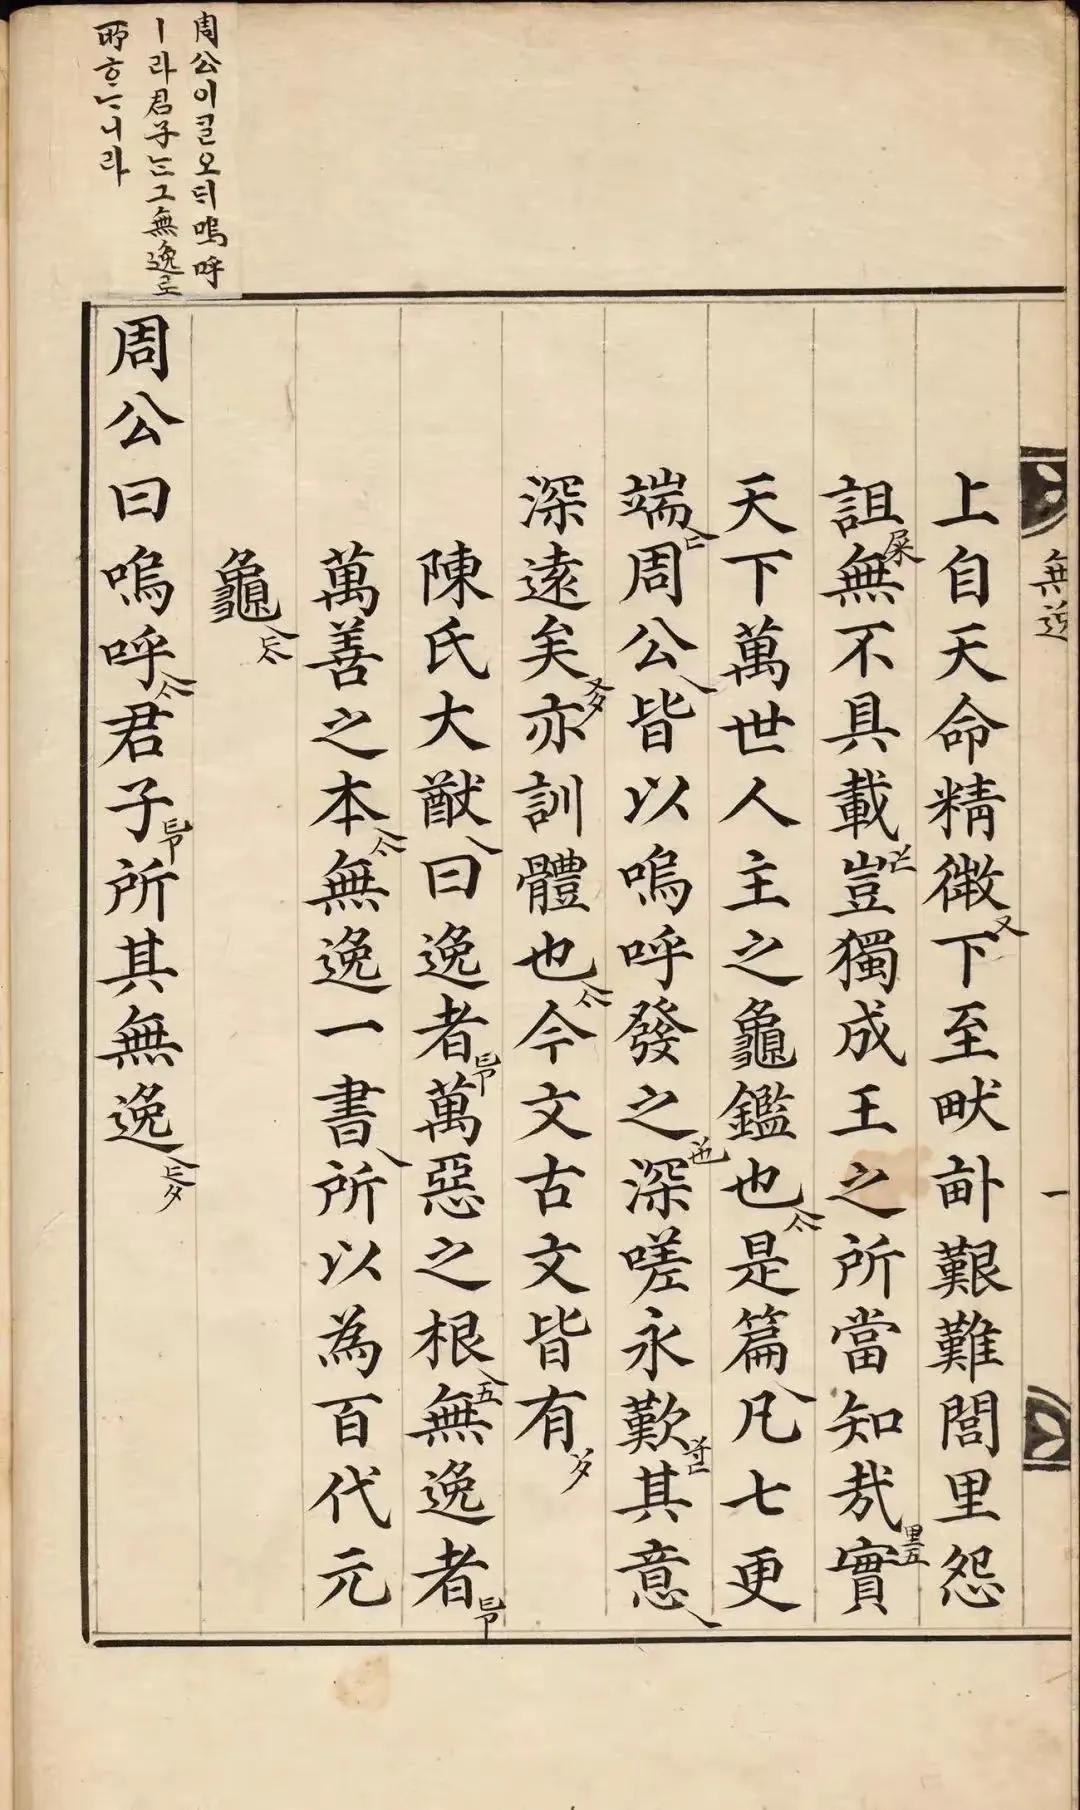 無逸
一
上自天命精微下至畎畝艱難閭里怨
詛無不具載豈獨成王之所當知哉實
天下萬世人主之龜鑑也是篇凡七更
端周公皆以嗚呼發之深嗟永歎其意
深遠矣亦訓體也今文古文皆有
陳氏大猷曰逸者萬惡之根無逸者
萬善之本無逸一書所以為百代元
龜
周公이ᄀᆞᆯ오ᄃᆡ嗚呼
ㅣ라君子ᄂᆞᆫ그無逸로
所ᄒᆞᄂᆞ니라
周公曰嗚呼君子所其無逸